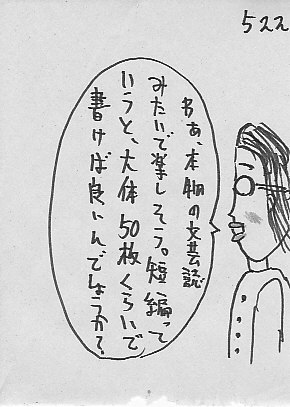 522
わあ、本物の文芸誌
みたいで楽しそう。短編って
いうと、大体50枚くらいで
書けば良いんでしょうか？